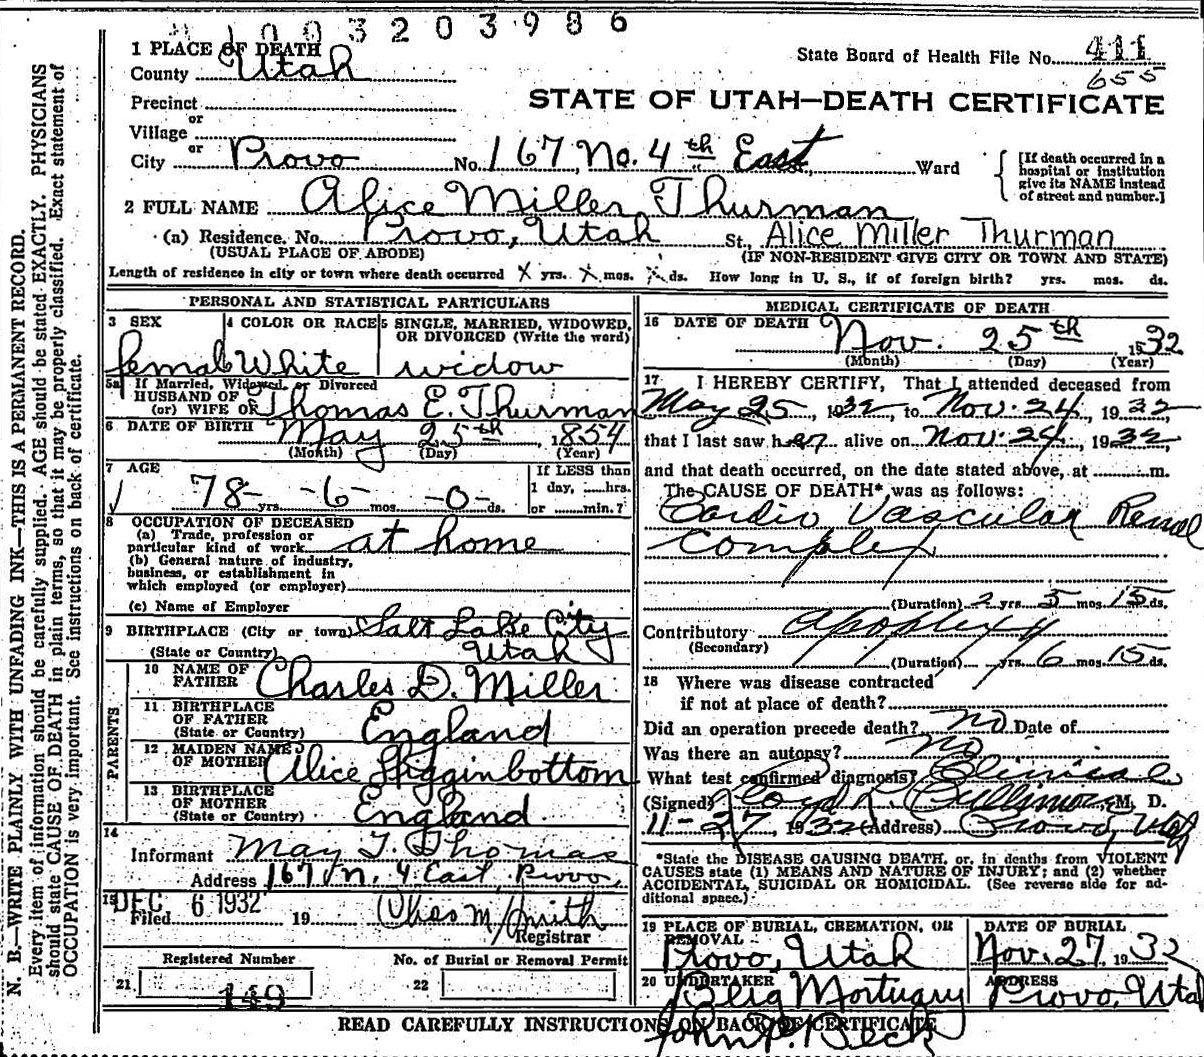 1003203986
1 PLACE OF DEATH
State Board of Health File No. 411
655
County Utah
STATE OF UTAH—DEATH CERTIFICATE
Precinct
or
Village
or
City Provo No. 167 No. 4th East Ward
[If death occurred in a hospital or institution give its NAME instead of street and number.]
2 FULL NAME Alice Miller Thurman
(a) Residence. No. Provo, Utah St. Alice Miller Thurman
(USUAL PLACE OF ABODE) (IF NON-RESIDENT GIVE CITY OR TOWN AND STATE)
Length of residence in city or town where death occurred X yrs. X mos. X ds. How long in U. S., if of foreign birth? yrs. mos. ds.
PERSONAL AND STATISTICAL PARTICULARS
3 SEX 4 COLOR OR RACE 5 SINGLE, MARRIED, WIDOWED, OR DIVORCED (Write the word)
femal White widow
5a If Married, Widowed, or Divorced
HUSBAND OF
(or) WIFE OF Thomas E. Thurman
6 DATE OF BIRTH May 25th, 1854
(Month) (Day) (Year)
7 AGE
If LESS than
1 day, ......hrs.
or ...... min.?
78 yrs. -6- mos. -0- ds.
8 OCCUPATION OF DECEASED
(a) Trade, profession or
particular kind of work at home
(b) General nature of industry,
business, or establishment in
which employed (or employer)
(c) Name of Employer
9 BIRTHPLACE (City or town) Salt Lake City
(State or Country) Utah
PARENTS
10 NAME OF FATHER Charles D. Miller
11 BIRTHPLACE OF FATHER (State or Country) England
12 MAIDEN NAME OF MOTHER Alice Higginbottom
13 BIRTHPLACE OF MOTHER (State or Country) England
14
Informant May T. Thomas
Address 167 N. 4 East, Provo,
15 DEC 6 1932
Filed 19 Chas M Smith
Registrar
Registered Number No. of Burial or Removal Permit
21 149 22
MEDICAL CERTIFICATE OF DEATH
16 DATE OF DEATH Nov. 25th 1932
(Month) (Day) (Year)
17 I HEREBY CERTIFY, That I attended deceased from
May 25, 1932, to Nov. 24, 1932
that I last saw her alive on Nov. 24, 1932
and that death occurred, on the date stated above, at ......m.
The CAUSE OF DEATH* was as follows:
Cardio Vascular Renal
Complex
(Duration) 2 yrs. 5 mos. 15 ds.
Contributory Apoplexy
(Secondary)
(Duration) yrs. 6 mos. 15 ds.
18 Where was disease contracted
if not at place of death?
Did an operation precede death? no Date of
Was there an autopsy? No
What test confirmed diagnosis? Clinical
(Signed) Cullimore, M. D.
11-27, 1932 (Address) Provo, Utah
*State the DISEASE CAUSING DEATH, or, in deaths from VIOLENT
CAUSES state (1) MEANS AND NATURE OF INJURY; and (2) whether
ACCIDENTAL, SUICIDAL OR HOMICIDAL. (See reverse side for ad-
ditional space.)
19 PLACE OF BURIAL, CREMATION, OR REMOVAL DATE OF BURIAL
Provo, Utah Nov. 27, 1932
20 UNDERTAKER ADDRESS
Berg Mortuary Provo, Utah
John P. Beck
READ CAREFULLY INSTRUCTIONS ON BACK OF CERTIFICATE
N. B.—WRITE PLAINLY WITH UNFADING INK—THIS IS A PERMANENT RECORD.
Every item of information should be carefully supplied. AGE should be stated EXACTLY. PHYSICIANS
should state CAUSE OF DEATH in plain terms, so that it may be properly classified. Exact statement of
OCCUPATION is very important. See instructions on back of certificate.